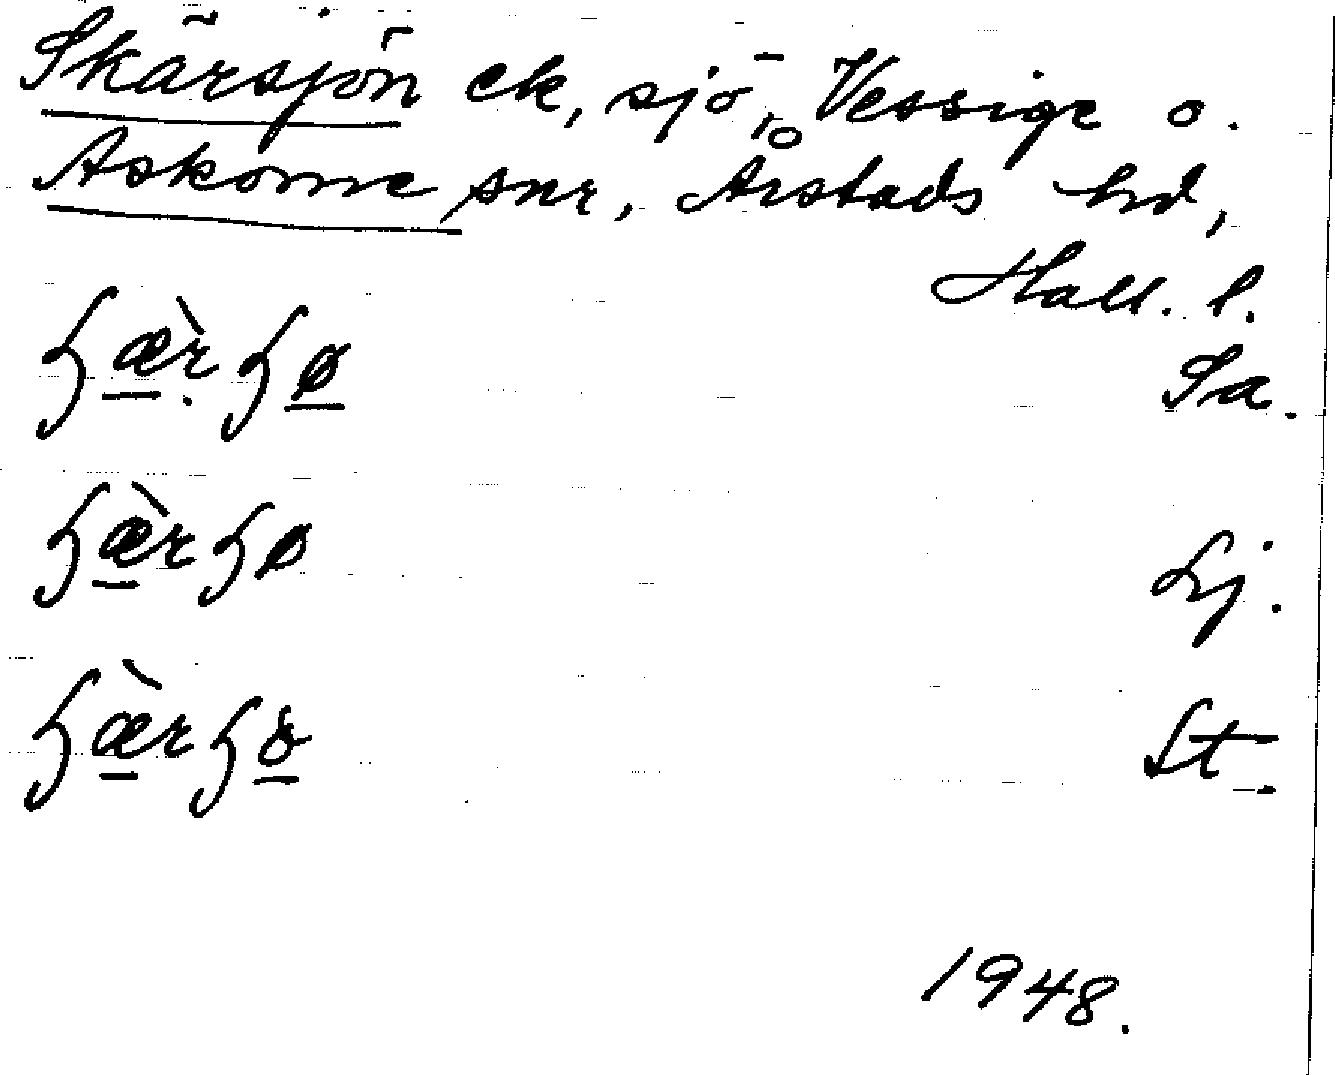 Skärsjön ek, sjö, Vessige o.
Askome snr, Årstads hd,
Hall. l.
ɧæ̀rɧø Sa.
ɧæ̀rɧø Lj.
ɧæ̀rɧ St.
1948.